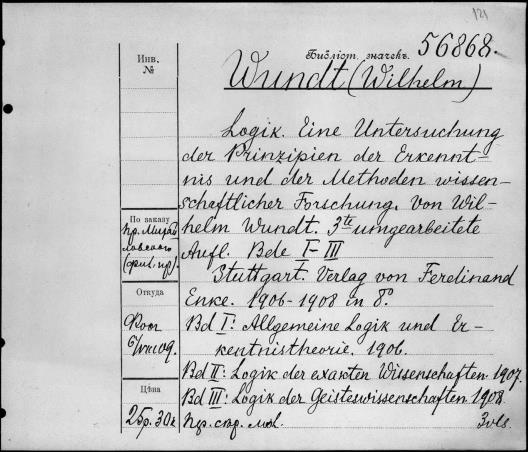 121
Инв.
№
Бібліот. значекъ.
56868.
Wundt (Wilhelm)
Logik. Eine Untersuchung
der Prinzipien der Erkennt-
nis und der Methoden wissen-
schaftlicher Forschung, von Wil-
helm Wundt. 3te umgearbeitete
Aufl. Bde I-III
Stuttgart. Verlag von Ferdinand
Enke. 1906-1908 in 8º
Bd I: Allgemeine Logik und Er-
kenntnistheorie. 1906.
Bd II: Logik der exakten Wissenschaften. 1907.
Bd III: Logik der Geisteswissenschaften. 1908.
3 vls.
По заказу
пр.
Откуда
Цѣна
25р. 30к